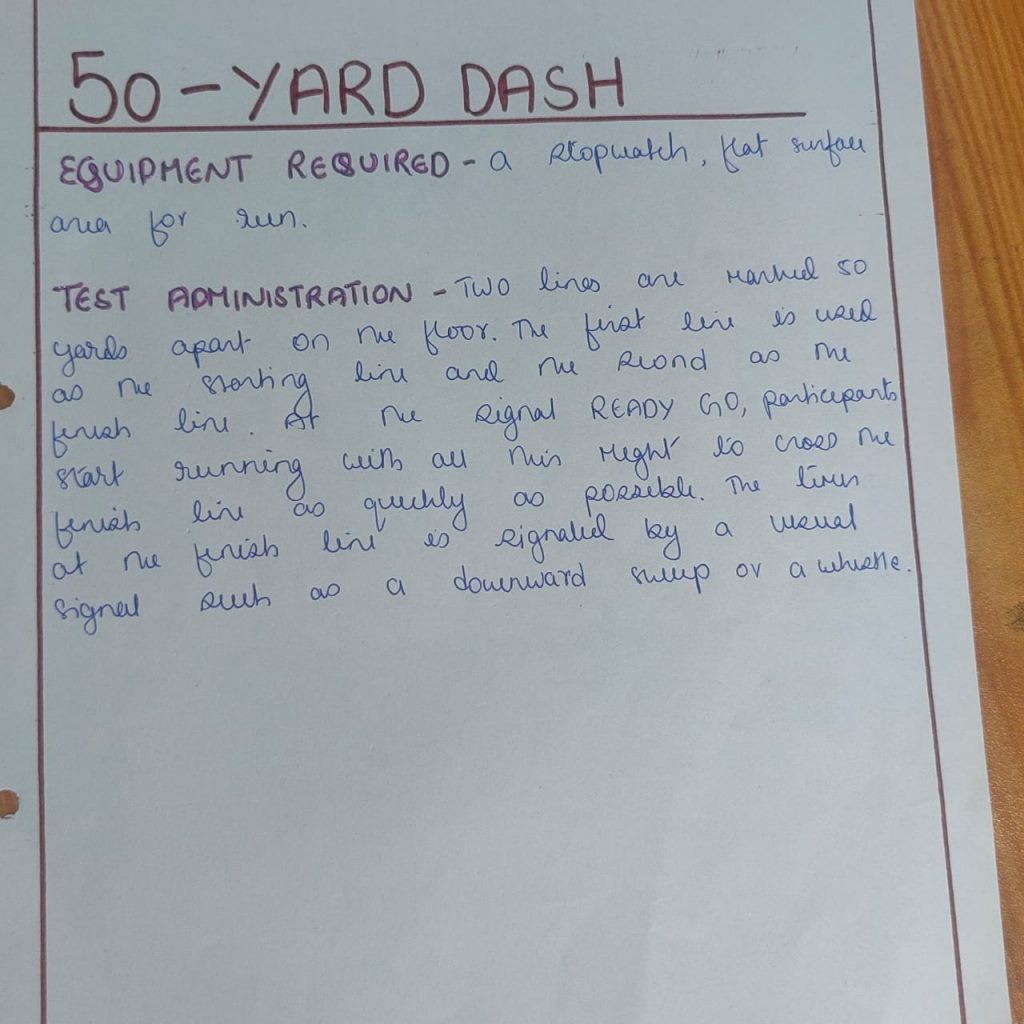 50-YARD DASH
EQUIPMENT REQUIRED - a stopwatch, flat surface
area for run.
TEST ADMINISTRATION - TWO lines are marked 50
yards apart on the floor. The first line is used
as the starting line and the second as the
finish line. At the signal READY GO, participants
start running with all this might to cross the
finish line as quickly as possible. The
at the finish line is signaled by a visual
signal such as a downward sweep or a whistle.